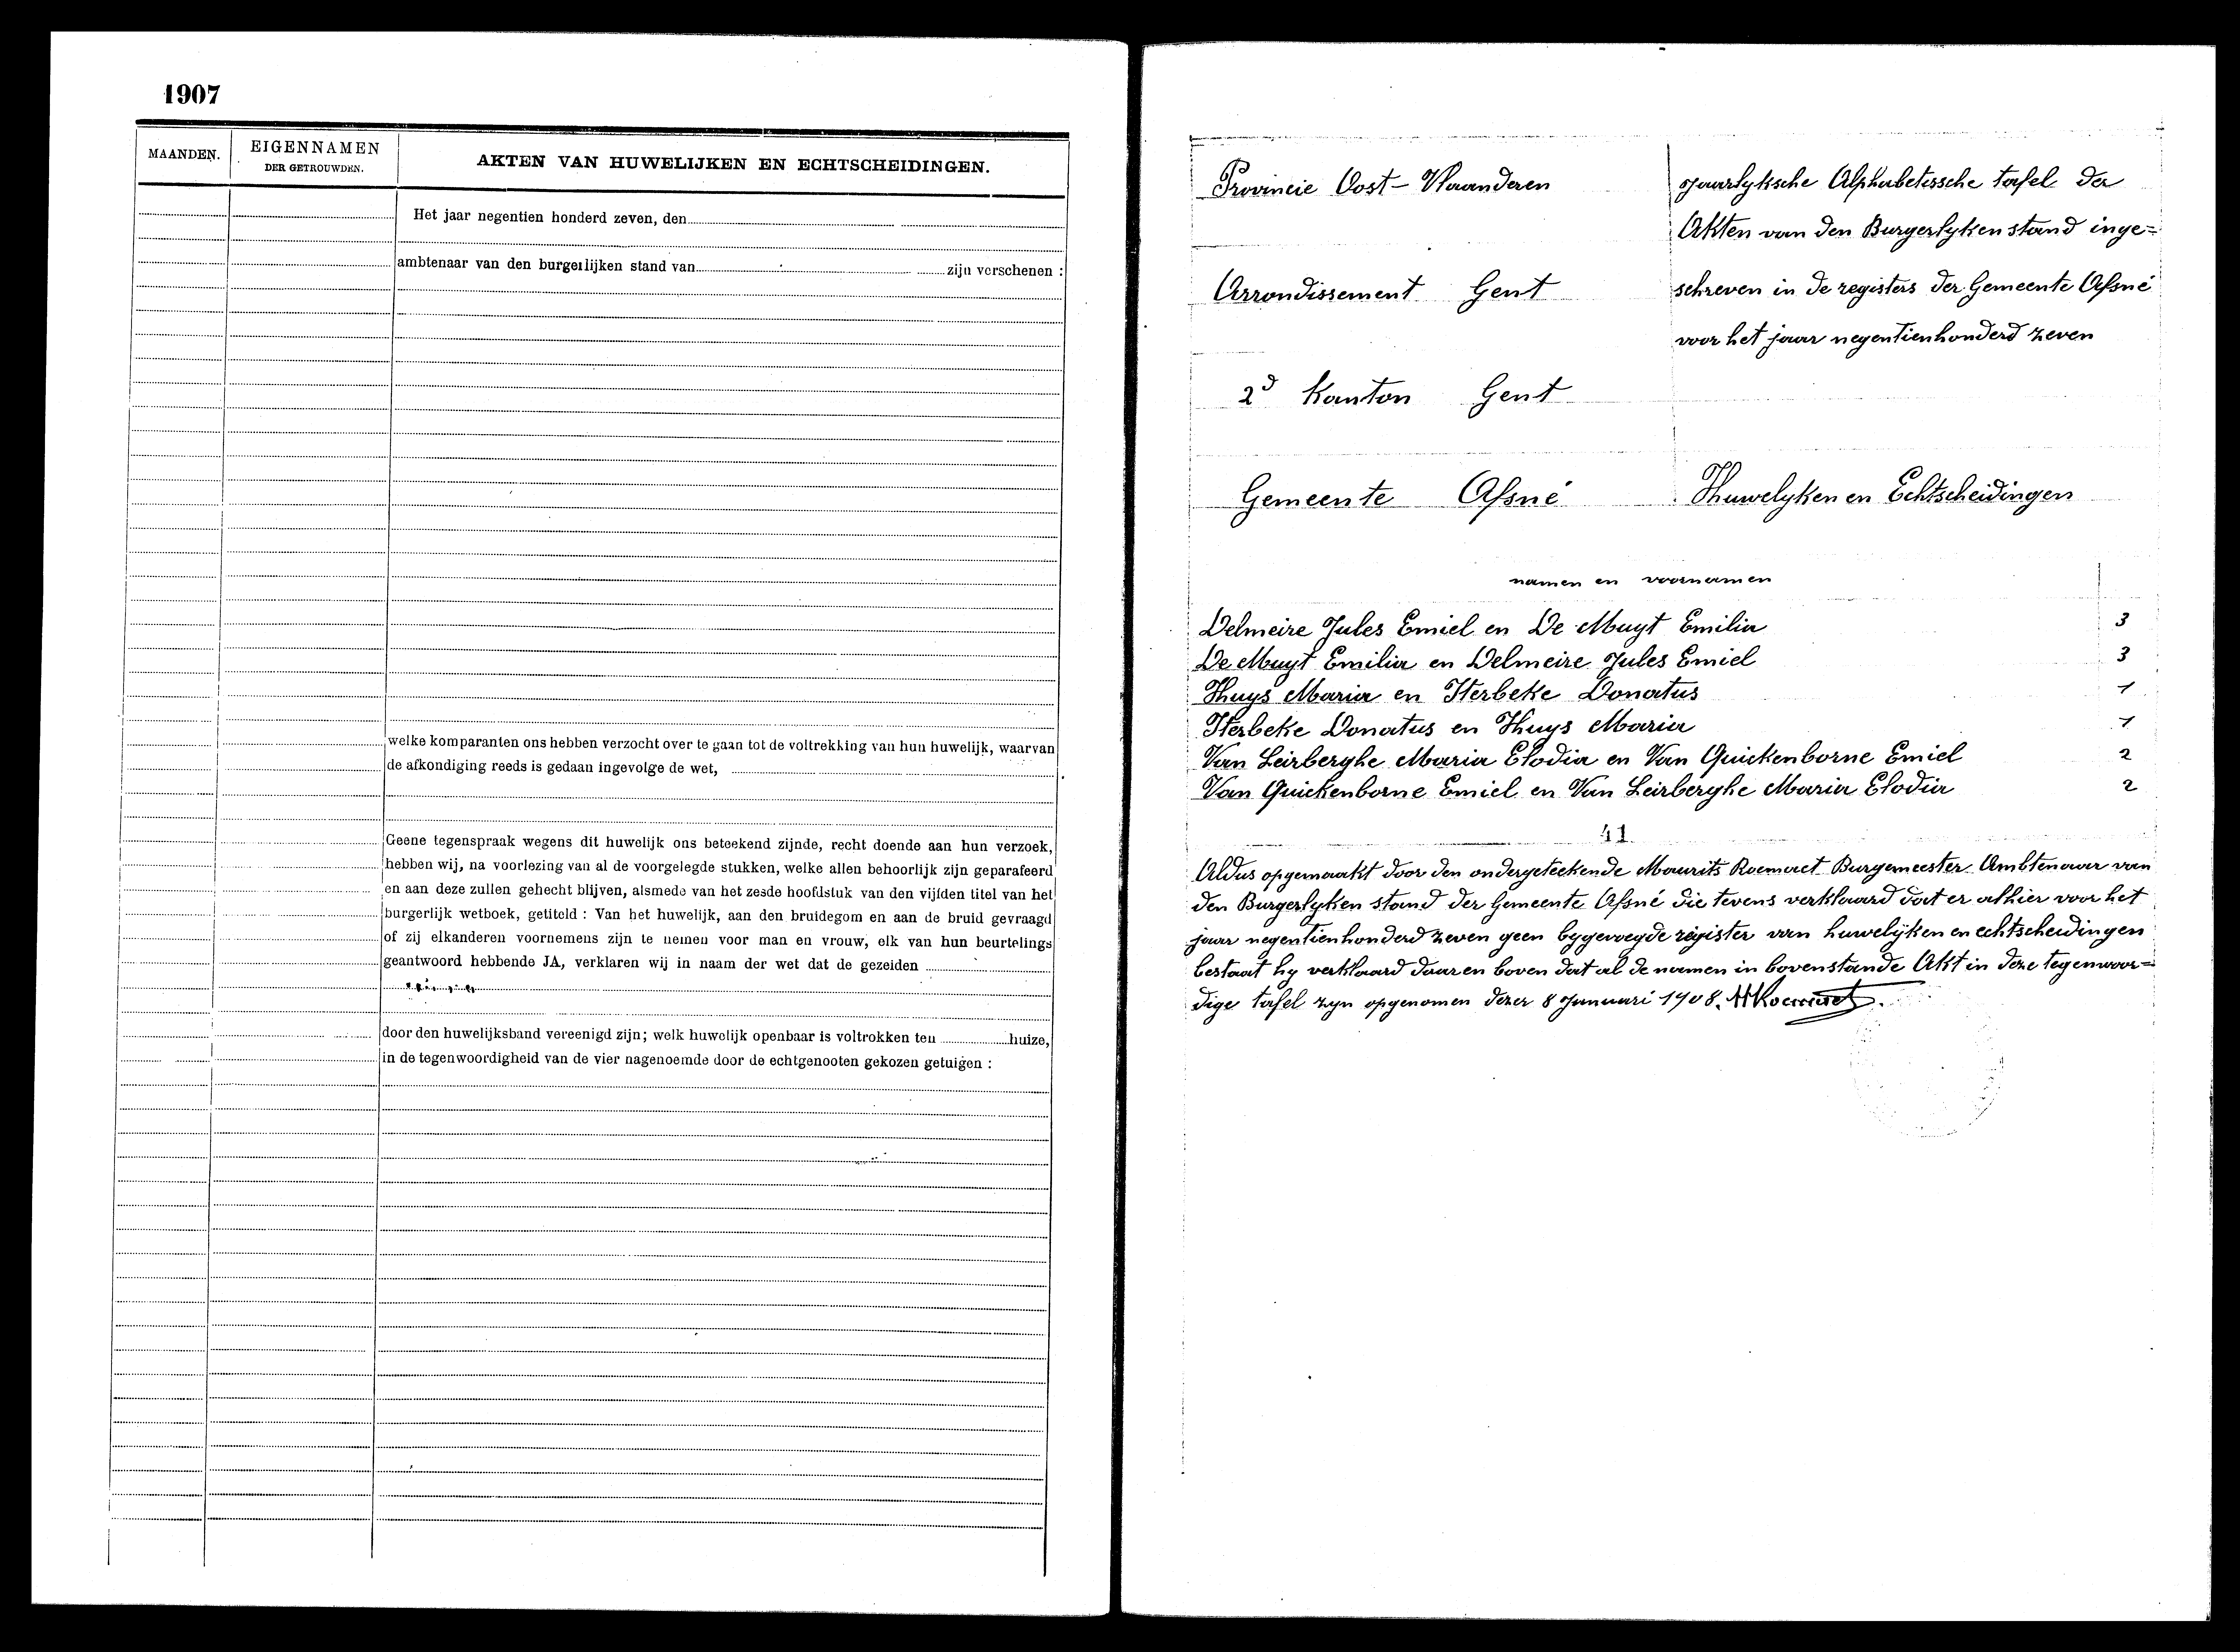 1907
MAANDEN.
EIGENNAMEN
DER GETROUWDEN.
AKTEN VAN HUWELIJKEN EN ECHTSCHEIDINGEN.
Het jaar negentien honderd zeven, den
ambtenaar van den burgerlijken stand van zijn verschenen :
welke komparanten ons hebben verzocht over te gaan tot de voltrekking van hun huwelijk, waarvan
de afkondiging reeds is gedaan ingevolge de wet,
Geene tegenspraak wegens dit huwelijk ons beteekend zijnde, recht doende aan hun verzoek,
hebben wij, na voorlezing van al de voorgelegde stukken, welke allen behoorlijk zijn geparafeerd
en aan deze zullen gehecht blijven, alsmede van het zesde hoofdstuk van den vijfden titel van het
burgerlijk wetboek, getiteld : Van het huwelijk, aan den bruidegom en aan de bruid gevraagd
of zij elkanderen voornemens zijn te nemen voor man en vrouw, elk van hun beurtelings
geantwoord hebbende JA, verklaren wij in naam der wet dat de gezeiden
door den huwelijksband vereenigd zijn; welk huwelijk openbaar is voltrokken ten huize,
in de tegenwoordigheid van de vier nagenoemde door de echtgenooten gekozen getuigen :
Provincie Oost-Vlaanderen
Jaarlyksche Alphabetissche tafel der
Akten van den Burgerlyken stand inge=
Arrondissement Gent
schreven in de registers der Gemeente Afsné
voor het jaar negentienhonderd zeven
2d Kanton Gent
Gemeente Afsné
Huwelyken en Echtscheidingen
namen en voornamen
Delmeire Jules Emiel en De Muyt Emilia 3
De Muyt Emilia en Delmeire Jules Emiel 3
Huys Maria en Sterbeke Donatus 1
Sterbeke Donatus en Huys Maria 1
Van Leirberghe Maria Elodia en Van Quickenborne Emiel 2
Van Quickenborne Emiel en Van Leirberghe Maria Elodia 2
41
Aldus opgemaakt door den ondergeteekende Maurits Roemaet Burgemeester Ambtenaar van
den Burgerlyken stand der Gemeente Afsné die tevens verklaard dat er alhier voor het
jaar negentienhonderd zeven geen bygevoegde register van huwelijken en echtscheidingen
bestaat hy verklaard daaren boven dat al de namen in bovenstande Akt in deze tegenwoor=
dige tafel zyn opgenomen dezer 8 Januari 1908. MRoemaet.